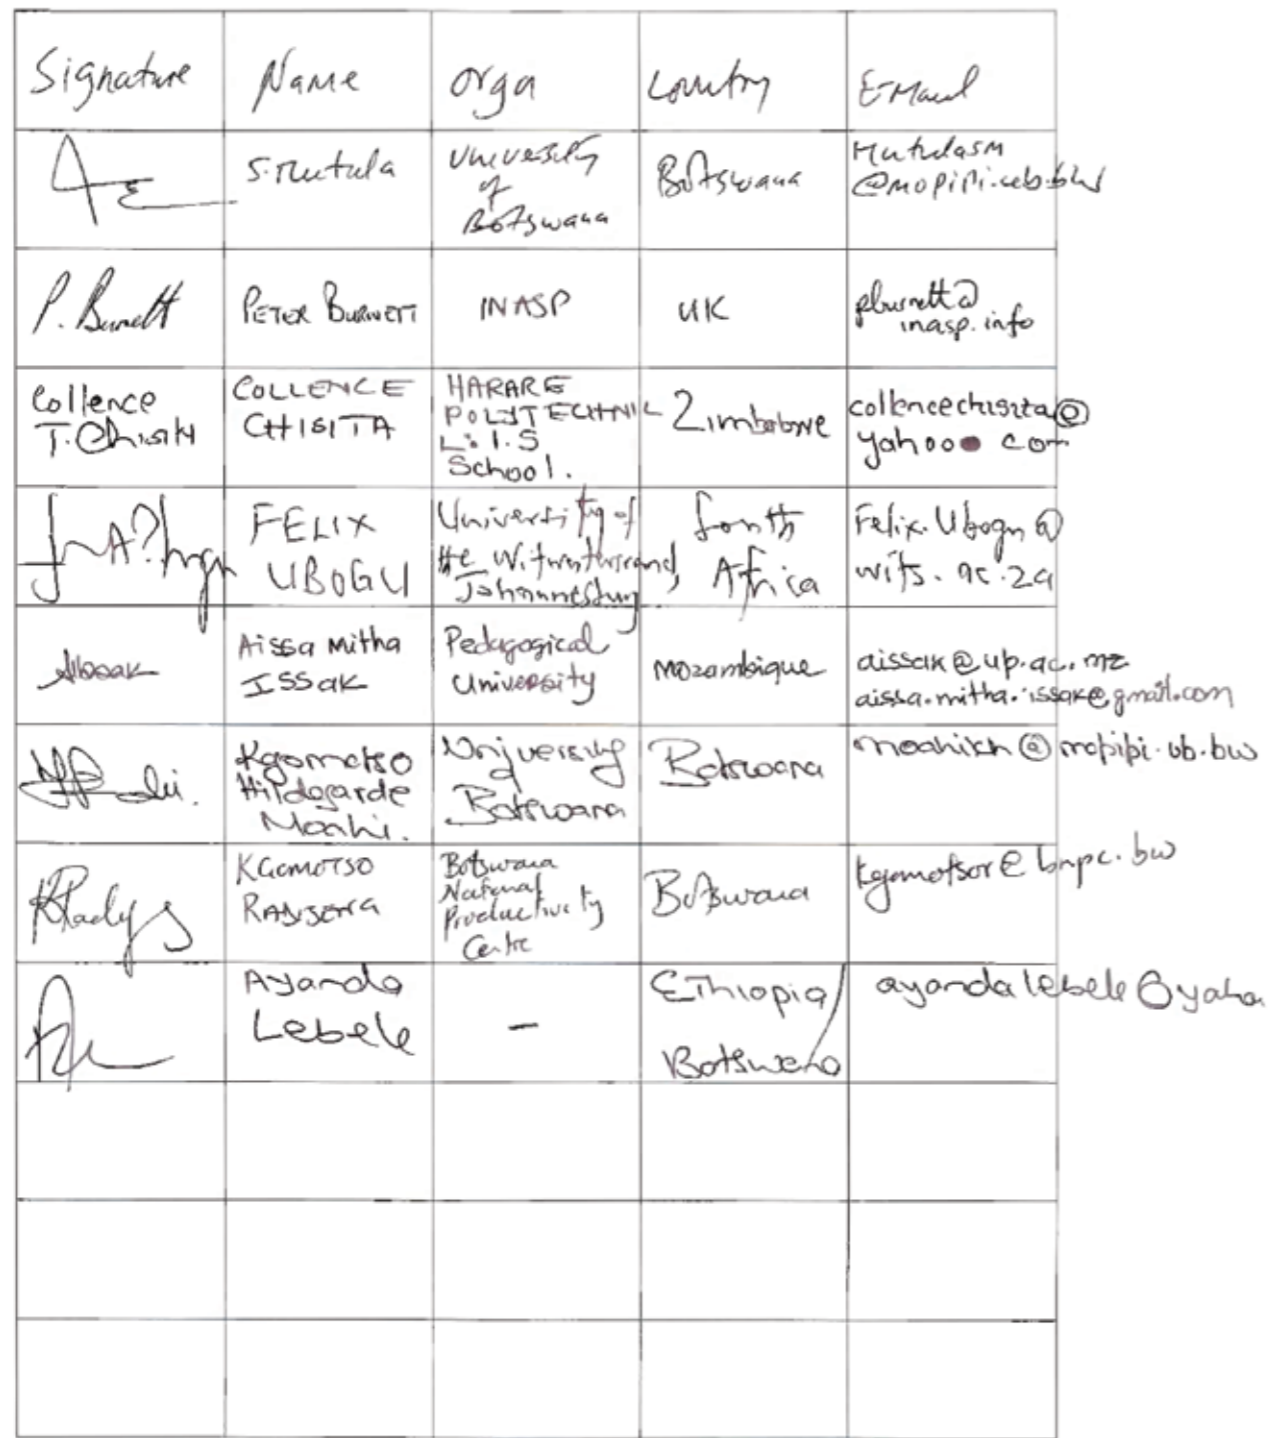 Signature Name Orga Country E-Mail
S. Mutula
University
of
Botswana
Botswana
Mutulasm
@mopipi.ub.bw
P. Burnett
PETER BURNETT
INASP
UK
pburnett@
inasp.info
Collence
T. Chisita
COLLENCE
CHISITA
HARARE
POLYTECHNIC
L.I.S
School.
Zimbabwe
collencechisita@
yahoo.com
FELIX
UBOGU
University of
the Witwatersrand,
Johannesburg
South
Africa
Felix.Ubogu@
wits.ac.za
AIssak
Aissa Mitha
ISSak
Pedagogical
University
Mozambique
aissak@up.ac.mz
aissa.mitha.issak@gmail.com
Kgomotso
Hildegarde
Moahi.
University
Botswana
Botswana
moahikh@mopipi.ub.bw
KGOMOTSO
Botswana
National
Productivity
Centre
Botswana
kgomotsor@bnpc.bw
Ayanda
Lebele
-
Ethiopia/
Botswana
ayandalebele@yahoo